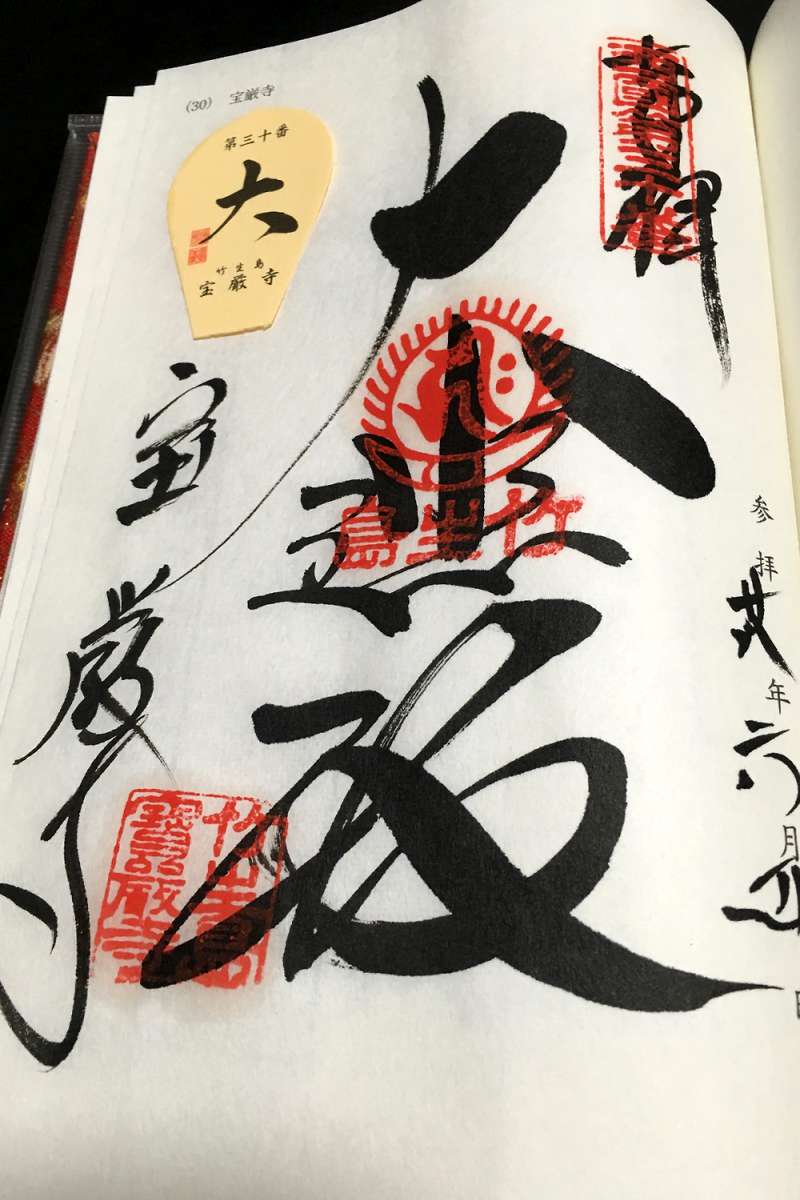 (30) 宝厳寺
第三十番
大
竹生島
宝厳寺
奉拝
大悲殿
竹生島
宝厳寺
竹生島
寳厳寺
参拝 年 六 月 日